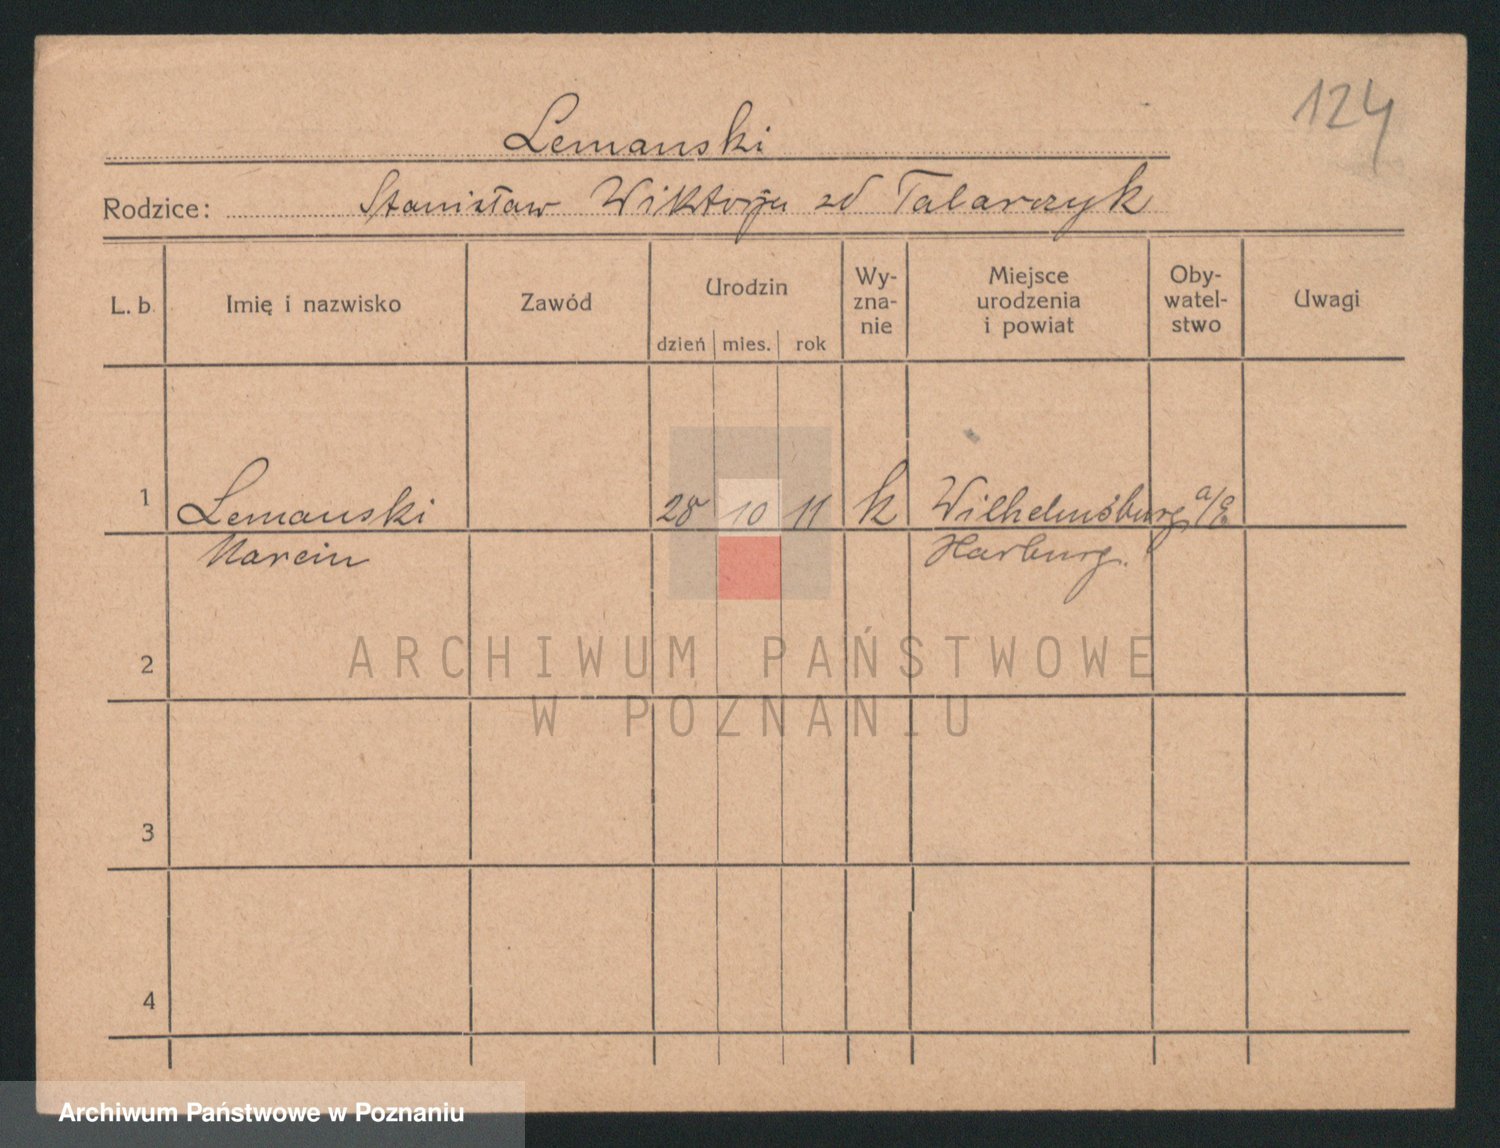 124
Lemanski
Rodzice: Stanisław Wiktorja zd Talarczyk
L. b. Imię i nazwisko Zawód Urodzin dzień mies. rok Wy-zna-nie Miejsce urodzenia i powiat Oby-watel-stwo Uwagi
1 Lemanski 28 10 11 k Wilhelmsburg a/E
Marcin Harburg.
2
3
4
ARCHIWUM PAŃSTWOWE
W POZNANIU
Archiwum Państwowe w Poznaniu